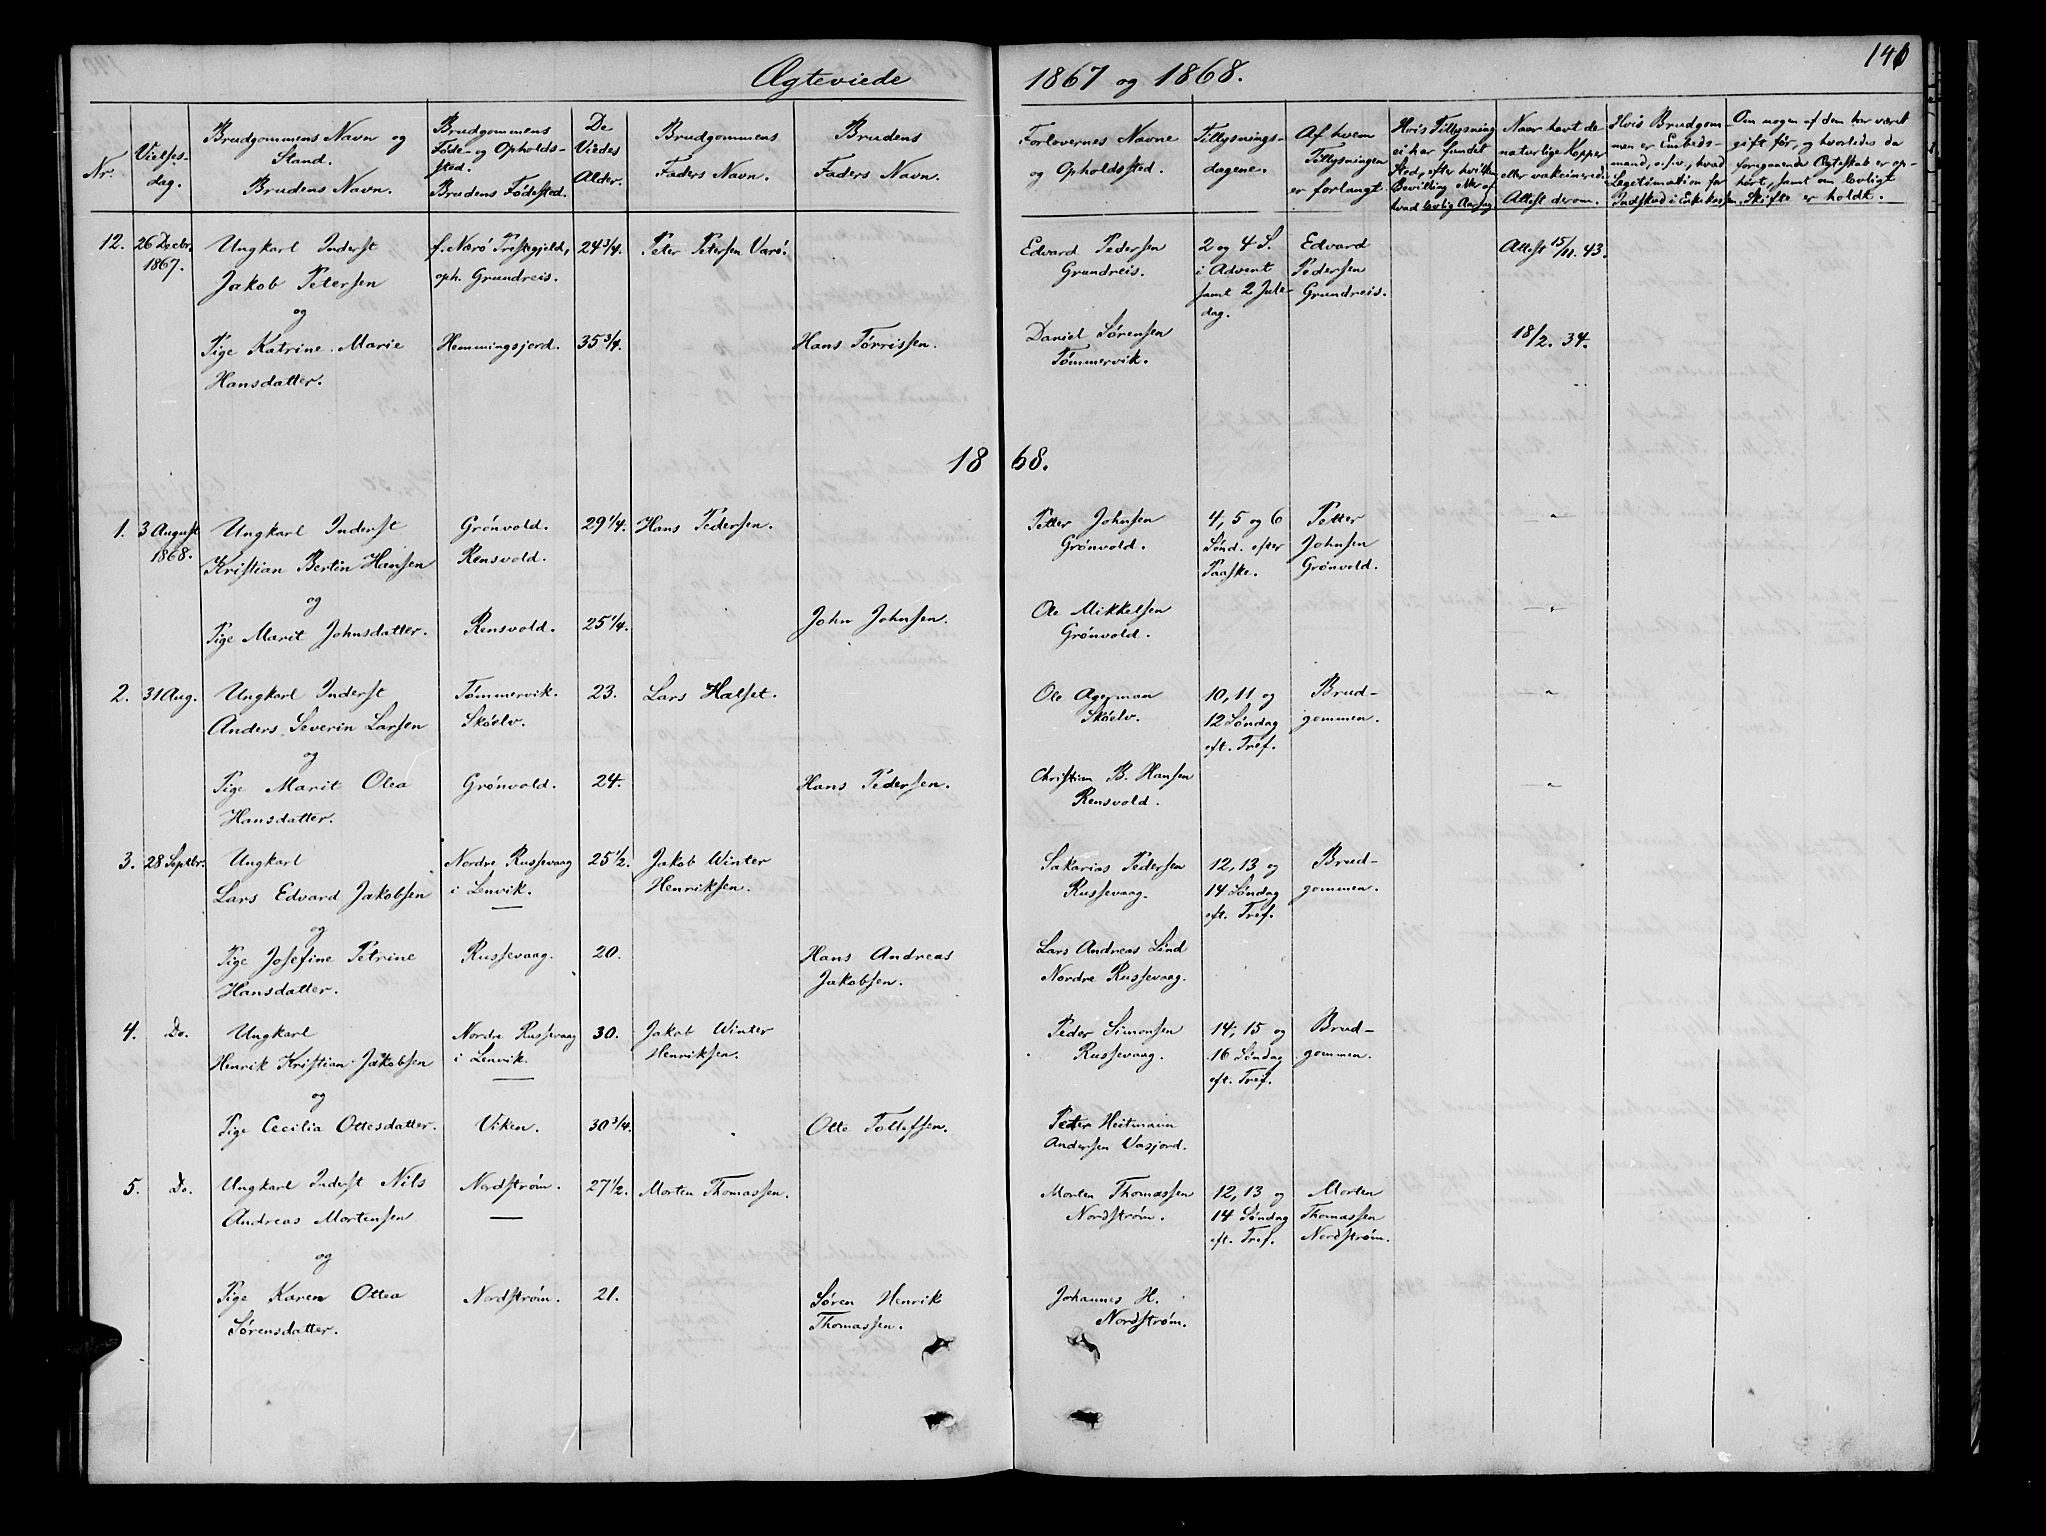 146
Ægteviede
1867 og 1868.
Nr.
Vielses-
dag.
Brudgommens Navn og
Stand.
Brudens Navn.
Brudgommens
Føde- og Opholds-
sted.
Brudens Fødested.
De
Viedes
Alder.
Brudgommens
Faders Navn.
Brudens
Faders Navn.
Forlovernes Navne
og Opholdssted.
Tillysnings-
dagene.
Af hvem
Tillysningen
er forlangt
Hvis Tillysning
ei har fundet
Sted, efter hvilken
Bevilling eller af
hvad lovlig Aarsag
Naar havt de
naturlige Kopper
eller vakcinerede
Attest derom.
Hvis Brudgom-
men er Embeds-
mand, o.s.v., hvad
Legitimation for
Indskud i Enkekassen.
Om nogen af dem har været
gift før, og hvorledes da
foregaaende Ægteskab er op-
hørt, samt om lovligt
Skifte er holdt.
12. 26 Decbr. Ungkarl Inderst f. Nærø Præstegjeld, 24 3/4. Peter Petersen Varø. Edvard Pedersen 2 og 4 S. Edvard Attest 15/11. 43.
1867. Jakob Petersen oph. Grundreis. Grundreis. i Advent Pedersen
og samt 2 Jule- Grundreis.
dag.
Pige Katrine Marie Hemmingsjord. 35 3/4. Hans Tørrissen. Daniel Sørensen 18/2. 34.
Hansdatter. Tømmervik.
1868.
1. 3 August Ungkarl Inderst Grønvold. 29 1/4. Hans Pedersen. Petter Johnsen 4, 5 og 6 Petter — " —
1868. Kristian Bertin Hansen Rensvold. Grønvold. Sønd. efter Johnsen
og Paaske. Grønvold.
Pige Marit Johnsdatter. Rensvold. 25 1/4. John Johnsen. Ole Mikkelsen — " —
Grønvold.
2. 31 Aug. Ungkarl Inderst Tømmervik. 23. Lars Halset. Ole Agerman 10, 11 og Brud- — " —
Anders Severin Larsen Skøelv. Skøelv. 12 Søndag gommen.
og eft. Tref.
Pige Marit Olea Grønvold. 24. Hans Pedersen. Christian B. Hansen — " —
Hansdatter. Rensvold.
3. 28 Septbr. Ungkarl Nordre Russevaag 25 1/2. Jakob Winter Sakarias Pedersen 12, 13 og Brud-
Lars Edvard Jakobsen i Lenvik. Henriksen. Russevaag. 14 Søndag gommen.
og eft. Tref.
Pige Josefine Petrine Russevaag. 20. Hans Andreas Lars Andreas Lind
Hansdatter. Jakobsen. Nordre Russevaag.
4. Do. Ungkarl Nordre Russevaag 30. Jakob Winter Peder Simonsen 14, 15 og Brud-
Henrik Kristian Jakobsen i Lenvik. Henriksen. Russevaag. 16 Søndag gommen.
og eft. Tref.
Pige Cecilia Ottesdatter. Viken. 30 3/4. Otte Tollefsen. Peter Heitmann
Andersen Vasjord.
5. Do. Ungkarl Inderst Nils Nordstrøm. 27 1/2. Morten Thomassen. Morten Thomassen 12, 13 og Morten
Andreas Mortensen Nordstrøm. 14 Søndag Thomassen
og eft. Tref. Nordstrøm.
Pige Karen Ottea Nordstrøm. 21. Søren Henrik Johannes H.
Sørensdatter. Thomassen. Nordstrøm.